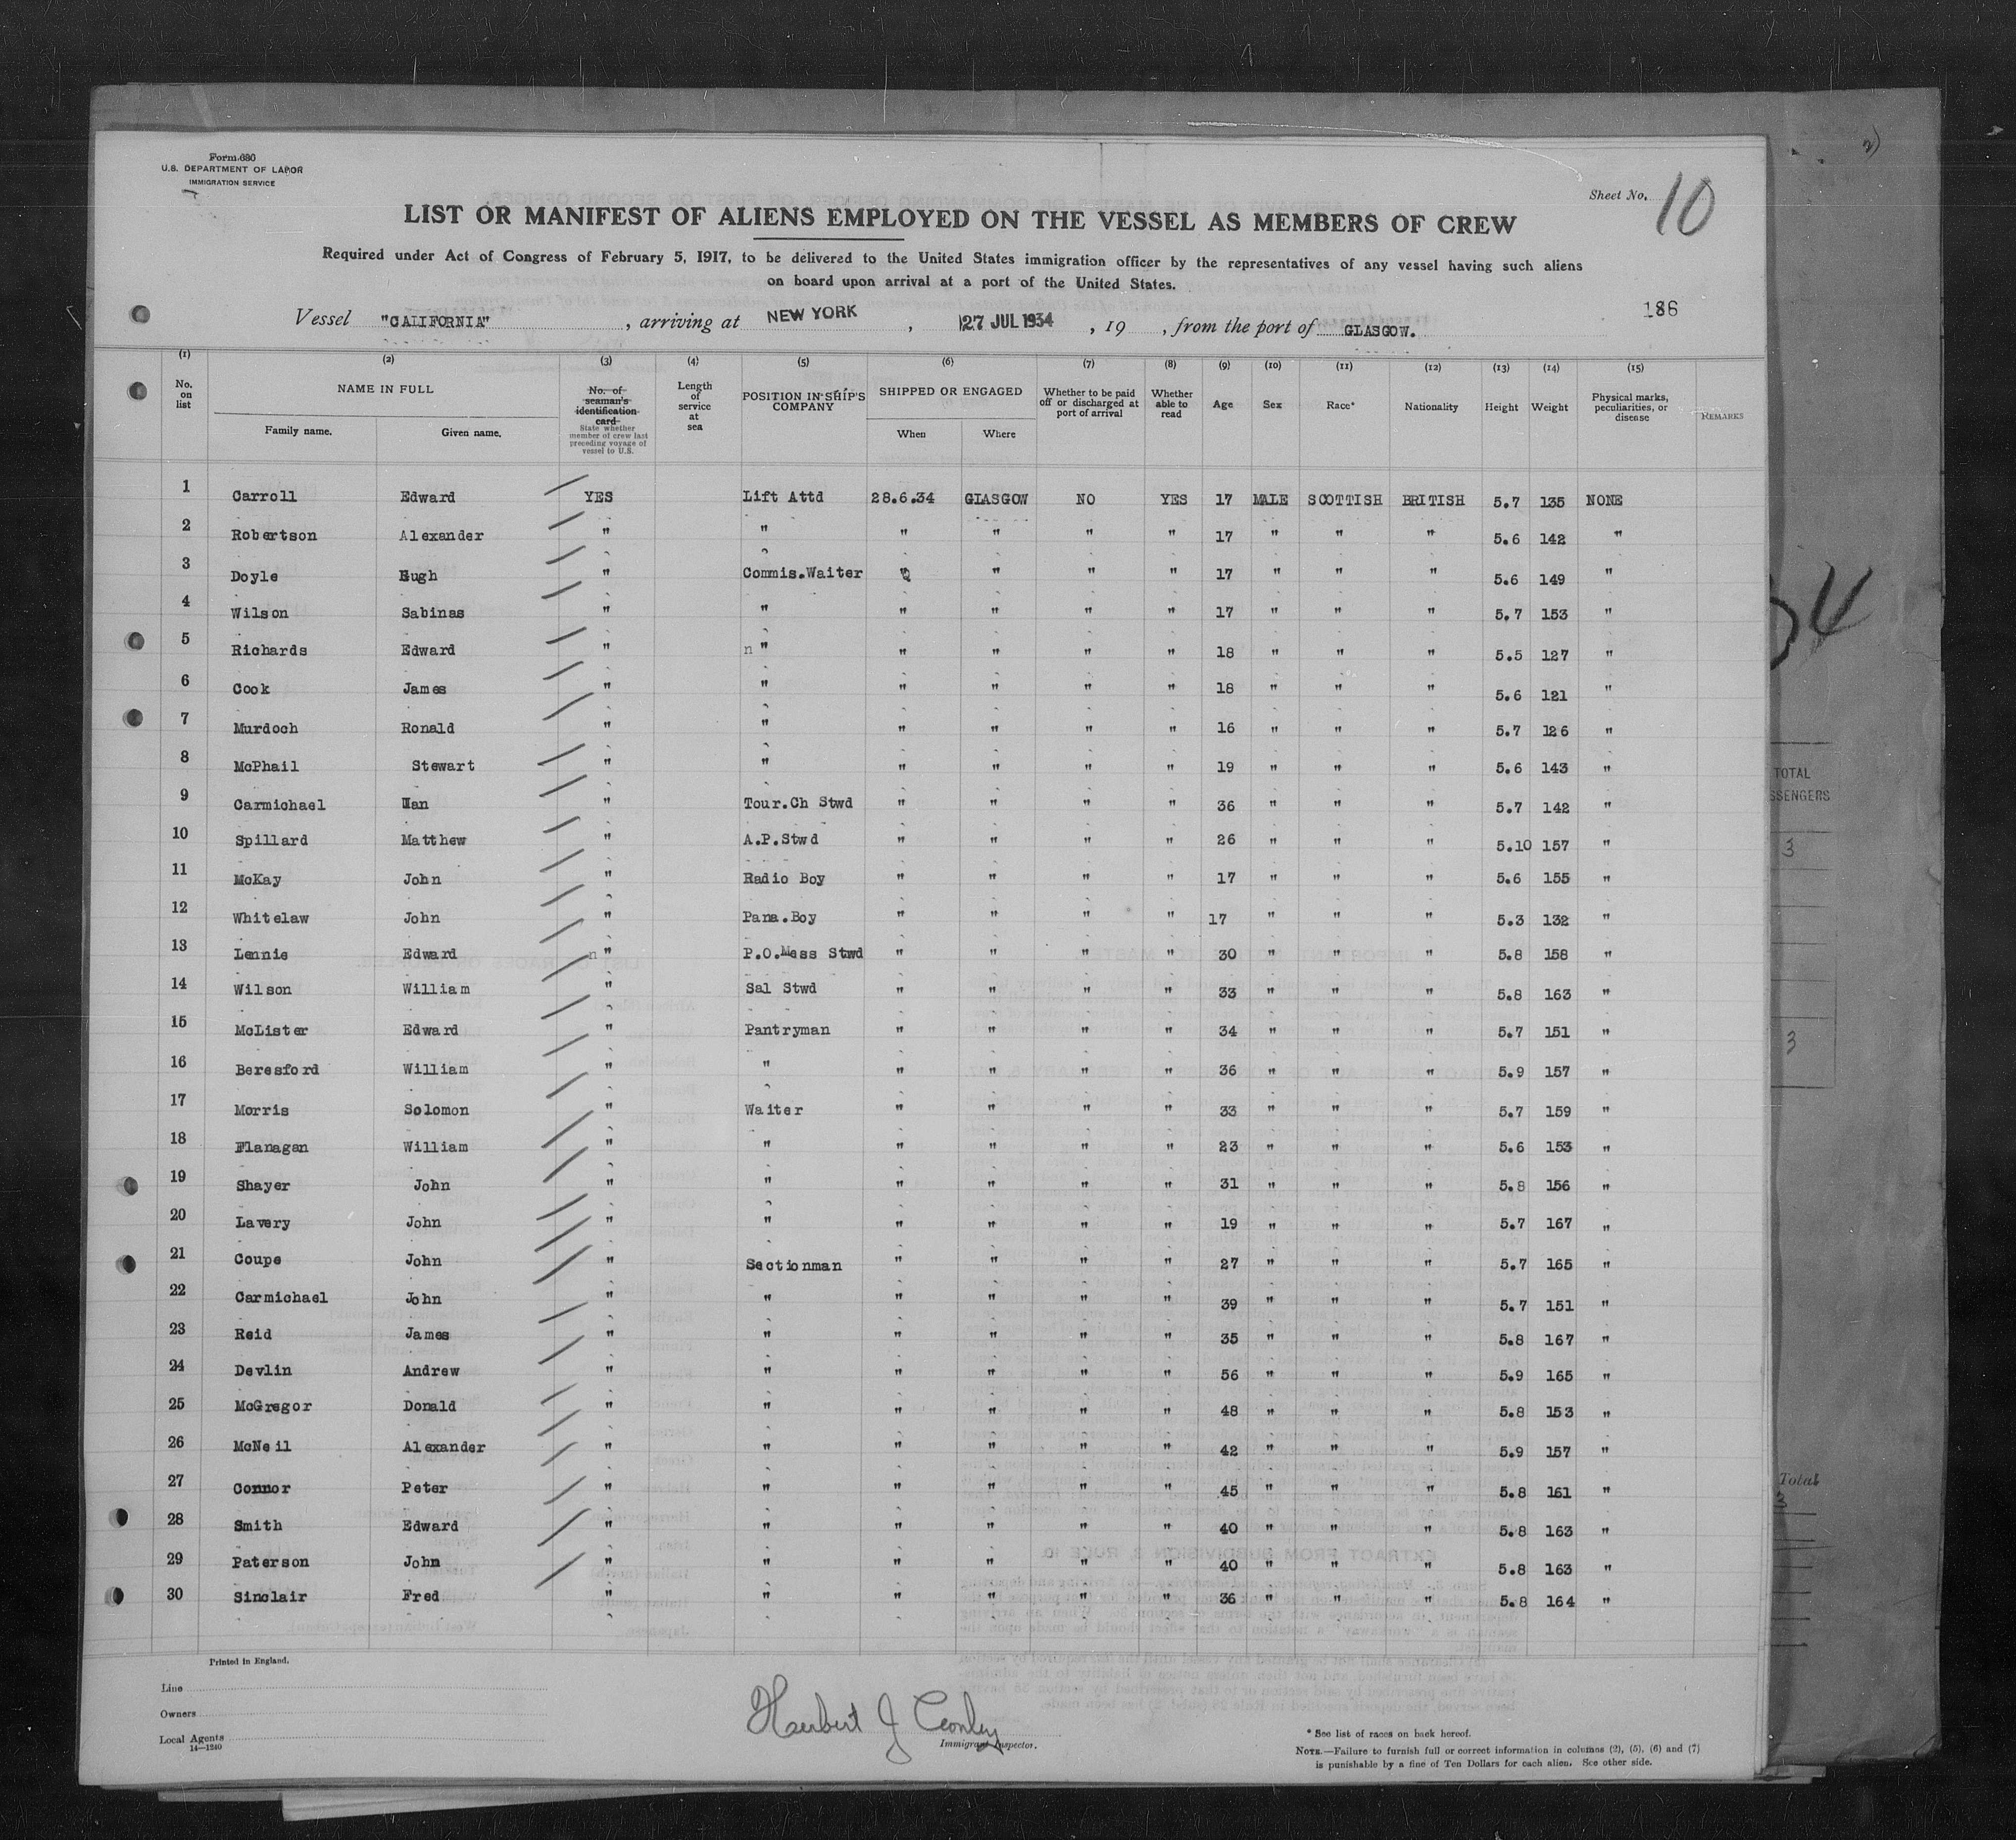 Form 680
U.S. DEPARTMENT OF LABOR
IMMIGRATION SERVICE
Sheet No. 10
LIST OR MANIFEST OF ALIENS EMPLOYED ON THE VESSEL AS MEMBERS OF CREW
Required under Act of Congress of February 5, 1917, to be delivered to the United States immigration officer by the representatives of any vessel having such aliens
on board upon arrival at a port of the United States.
186
Vessel "CALIFORNIA", arriving at NEW YORK, 27 JUL 1934, 19 , from the port of GLASGOW.
(1) (2) (3) (4) (5) (6) (7) (8) (9) (10) (11) (12) (13) (14) (15)
No. on list NAME IN FULL Family name. Given name. No. of seaman's identification card State whether member of crew last preceding voyage of vessel to U.S. Length of service at sea POSITION IN SHIP'S COMPANY SHIPPED OR ENGAGED When Where Whether to be paid off or discharged at port of arrival Whether able to read Age Sex Race* Nationality Height Weight Physical marks, peculiarities, or disease REMARKS
1 Carroll Edward YES Lift Attd 28.6.34 GLASGOW NO YES 17 MALE SCOTTISH BRITISH 5.7 135 NONE
2 Robertson Alexander " " " " " " 17 " " " 5.6 142 "
3 Doyle Hugh " Commis.Waiter " " " " 17 " " " 5.6 149 "
4 Wilson Sabinas " " " " " " 17 " " " 5.7 153 "
5 Richards Edward " n " " " " " 18 " " " 5.5 127 "
6 Cook James " " " " " " 18 " " " 5.6 121 "
7 Murdoch Ronald " " " " " " 16 " " " 5.7 126 "
8 McPhail Stewart " " " " " " 19 " " " 5.6 143 "
9 Carmichael Ian " Tour.Ch Stwd " " " " 36 " " " 5.7 142 "
10 Spillard Matthew " A.P.Stwd " " " " 26 " " " 5.10 157 "
11 McKay John " Radio Boy " " " " 17 " " " 5.6 155 "
12 Whitelaw John " Pana.Boy " " " " 17 " " " 5.3 132 "
13 Lennie Edward n " P.O.Mess Stwd " " " " 30 " " " 5.8 158 "
14 Wilson William " Sal Stwd " " " " 33 " " " 5.8 163 "
15 McLister Edward " Pantryman " " " " 34 " " " 5.7 151 "
16 Beresford William " " " " " " 36 " " " 5.9 157 "
17 Morris Solomon " Waiter " " " " 33 " " " 5.7 159 "
18 Flanagan William " " " " " " 23 " " " 5.6 153 "
19 Shayer John " " " " " " 31 " " " 5.8 156 "
20 Lavery John " " " " " " 19 " " " 5.7 167 "
21 Coupe John " Sectionman " " " " 27 " " " 5.7 165 "
22 Carmichael John " " " " " " 39 " " " 5.7 151 "
23 Reid James " " " " " " 35 " " " 5.8 167 "
24 Devlin Andrew " " " " " " 56 " " " 5.9 165 "
25 McGregor Donald " " " " " " 48 " " " 5.8 153 "
26 McNeil Alexander " " " " " " 42 " " " 5.9 157 "
27 Connor Peter " " " " " " 45 " " " 5.8 161 "
28 Smith Edward " " " " " " 40 " " " 5.8 163 "
29 Paterson John " " " " " " 40 " " " 5.8 163 "
30 Sinclair Fred " " " " " " 36 " " " 5.8 164 "
Printed in England.
Line
Owners
Local Agents
14—1240
Herbert J
Immigrant Inspector.
* See list of races on back hereof.
NOTE.—Failure to furnish full or correct information in columns (2), (5), (6) and (7)
is punishable by a fine of Ten Dollars for each alien. See other side.
34
TOTAL
3
3
Total
3